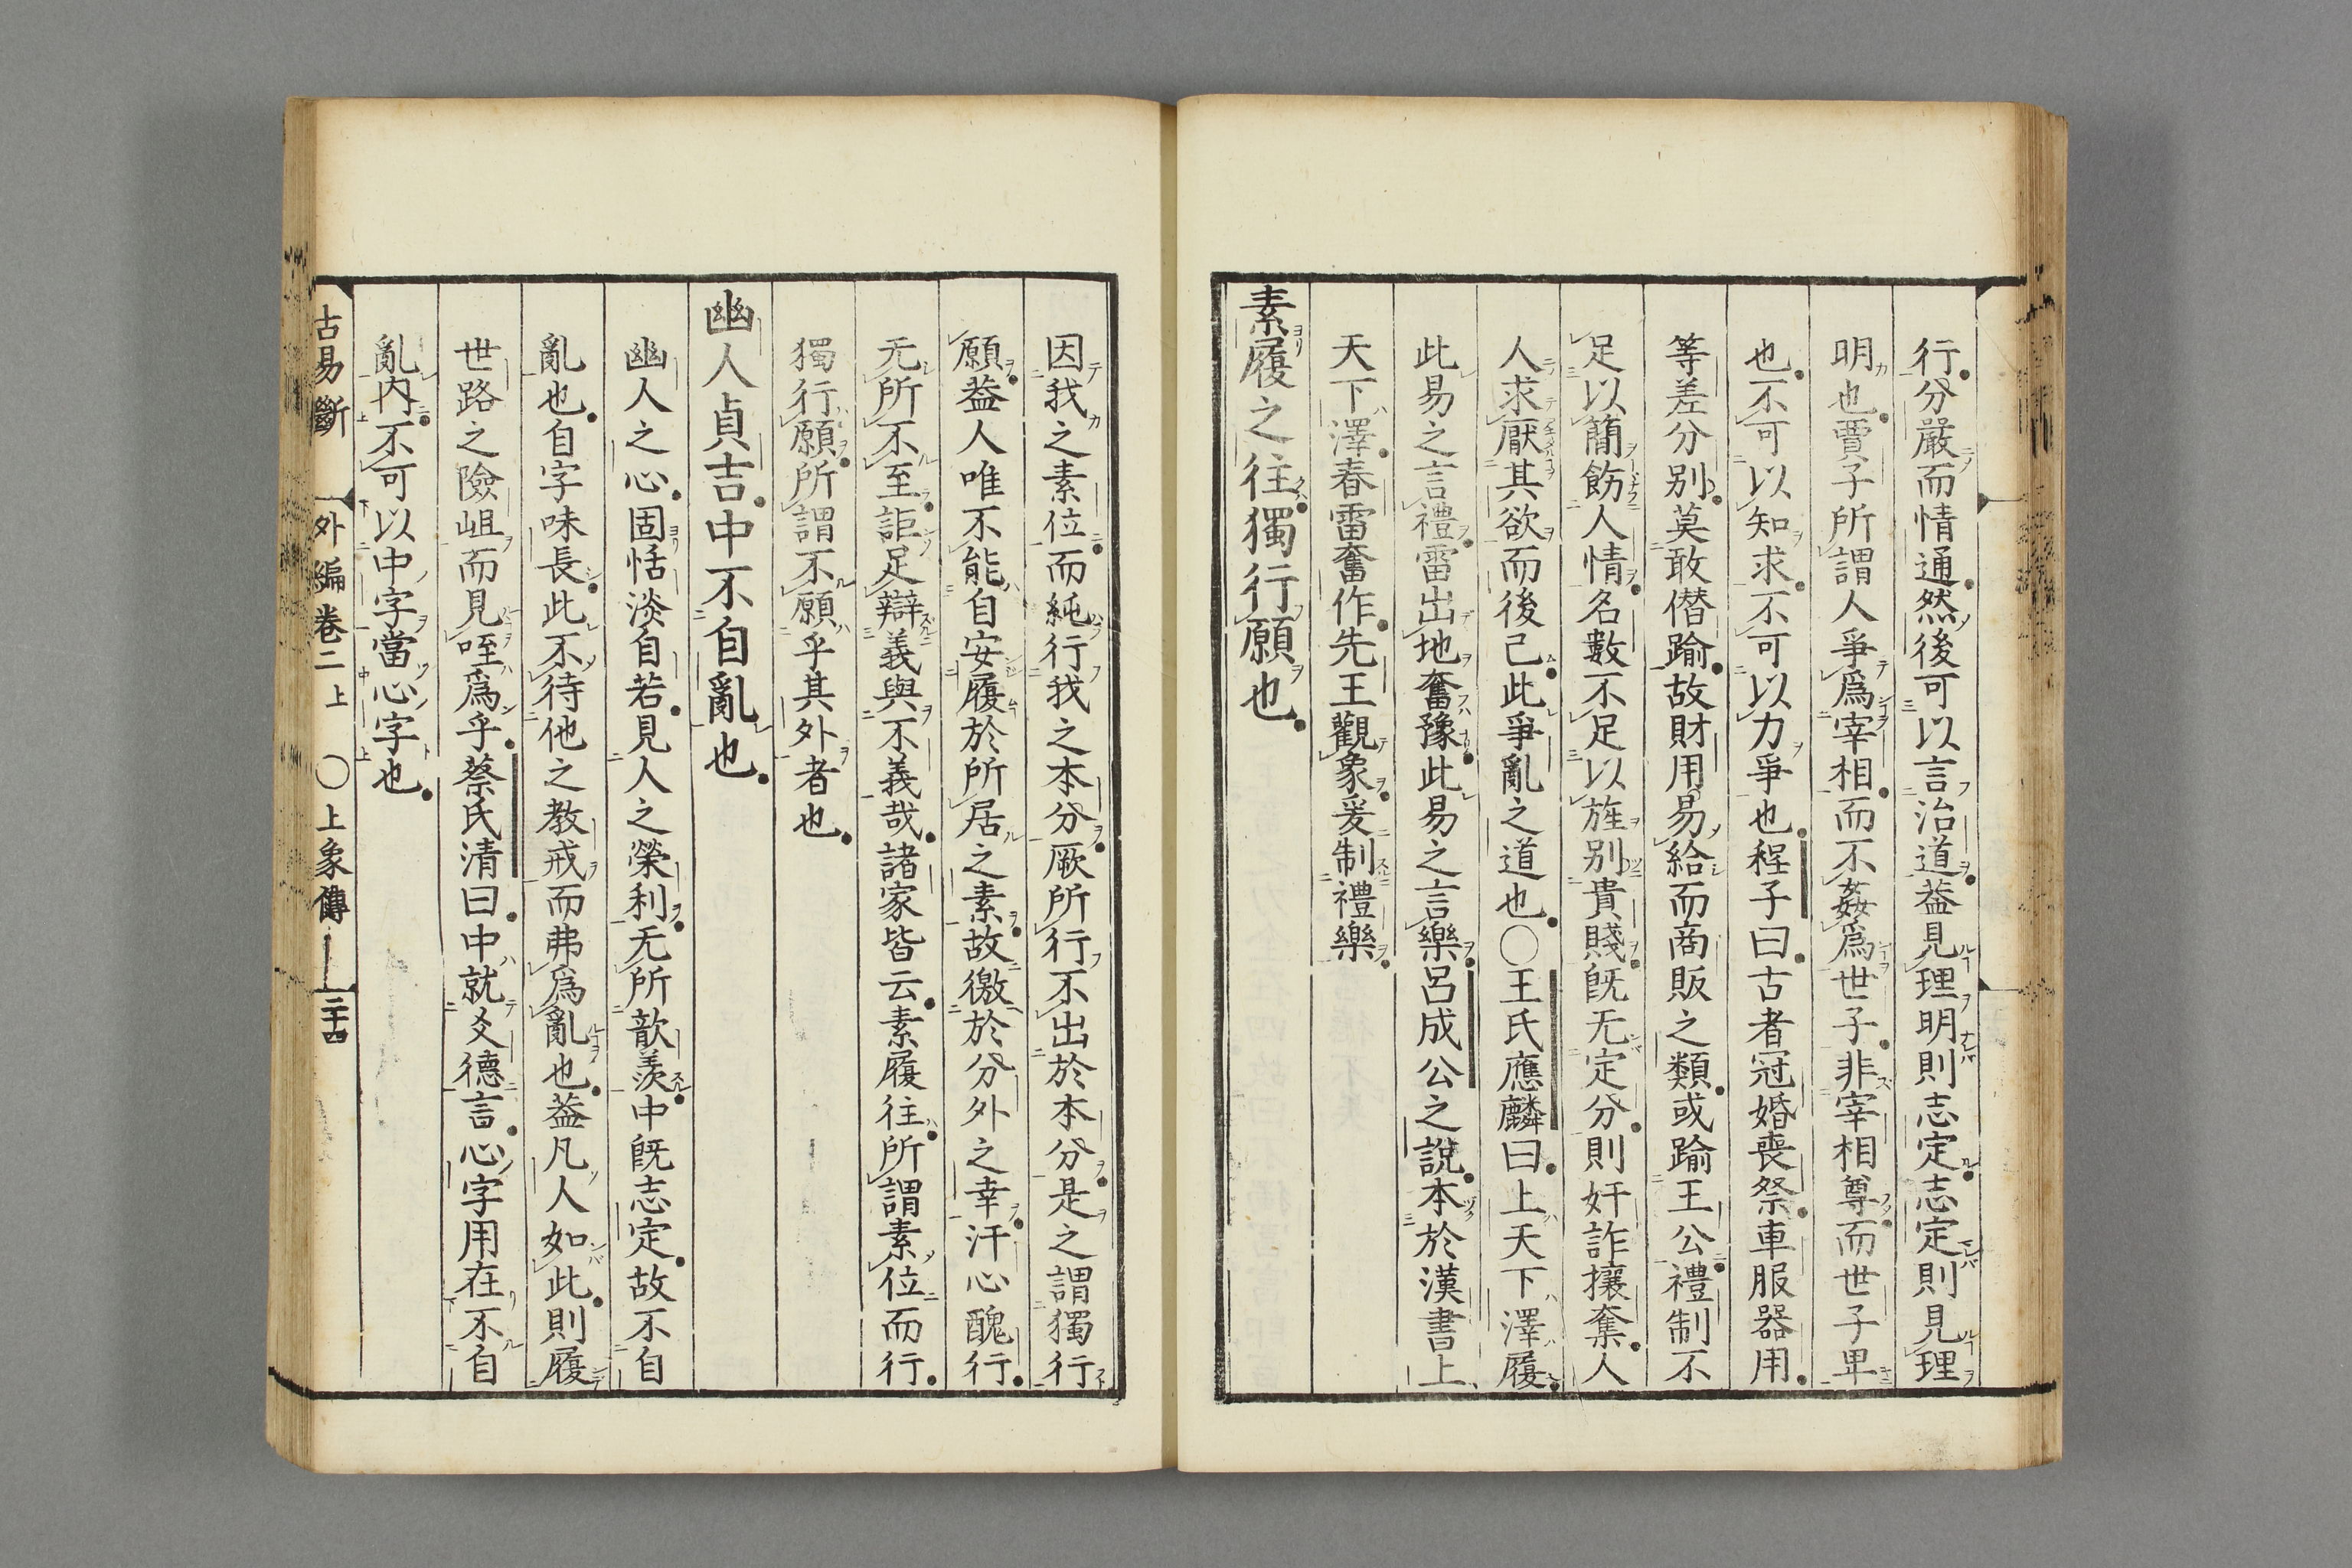 行分嚴而情通然後可以言治道葢見理明則志定志定則見理
明也賈子所謂人爭爲宰相而不姦爲世子非宰相尊而世子卑
也不可以知求不可以力爭也程子曰古者冠婚喪祭車服器用
等差分別莫敢僭踰故財用易給而商販之類或踰王公禮制不
足以簡飭人情名數不足以旌別貴賤旣无定分則奸詐攘奪人
人求厭其欲而後己此爭亂之道也〇王氏應麟曰上天下澤履
此易之言禮雷出地奮豫此易之言樂呂成公之說本於漢書上
天下澤春雷奮作先王觀象爰制禮樂
素履之往獨行願也
因我之素位而純行我之本分厥所行不出於本分是之謂獨行
願葢人唯不能自安履於所居之素故徼於分外之幸汗心醜行
无所不至詎足辯義與不義哉諸家皆云素履往所謂素位而行
獨行願所謂不願乎其外者也
幽人貞吉中不自亂也
幽人之心固恬淡自若見人之榮利无所歆羨中旣志定故不自
亂也自字味長此不待他之教戒而弗爲亂也葢凡人如此則履
世路之險岨而見咥爲乎蔡氏清曰中就爻德言心字用在不自
亂內不可以中字當心字也
古易斷 外編卷二上 〇上象傳 二十四